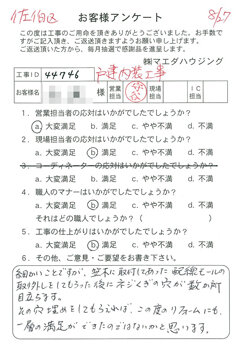 佐伯区
お客様アンケート
8/67
この度は工事のご用命を有難うございました。お手数で
すがご記入頂き、ご返送頂きますようお願い申し上げます。
ご返送頂いた方から、毎月抽選で感謝品を進呈します。
㈱マエダハウジング
工事ID 44746 戸建内装工事
お客様名 様 営業担当 現場担当
1. 営業担当者の応対はいかがでしたでしょうか?
a 大変満足 b. 満足 c. やや不満 d. 不満
2. 現場担当者の応対はいかがでしたでしょうか?
a. 大変満足 b 満足 c. やや不満 d. 不満
3. コーディネーターの応対はいかがでしたでしょうか?
a. 大変満足 b. 満足 c. やや不満 d. 不満
4. 職人のマナーはいかがでしたでしょうか?
a. 大変満足 b 満足 c. やや不満 d. 不満
それはどの職人でしょうか?( )
5. 工事の仕上がりはいかがでしたでしょうか?
a. 大変満足 b 満足 c. やや不満 d. 不満
6. その他、ご意見・ご要望をお書き下さい。
細かいことですが、笠木に取付けてあった配線モールの
取外しをしてもらった後にネジくぎの穴が数か所
目立ちます。
その穴埋めをしてもらえれば、この度のリフォームにも、
一層の満足ができたのではないかと思います。